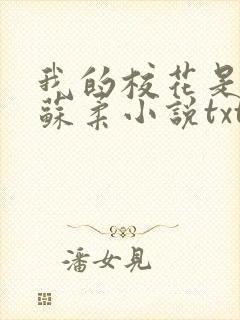 我的校花是
蘇柔小說txt
潘女見